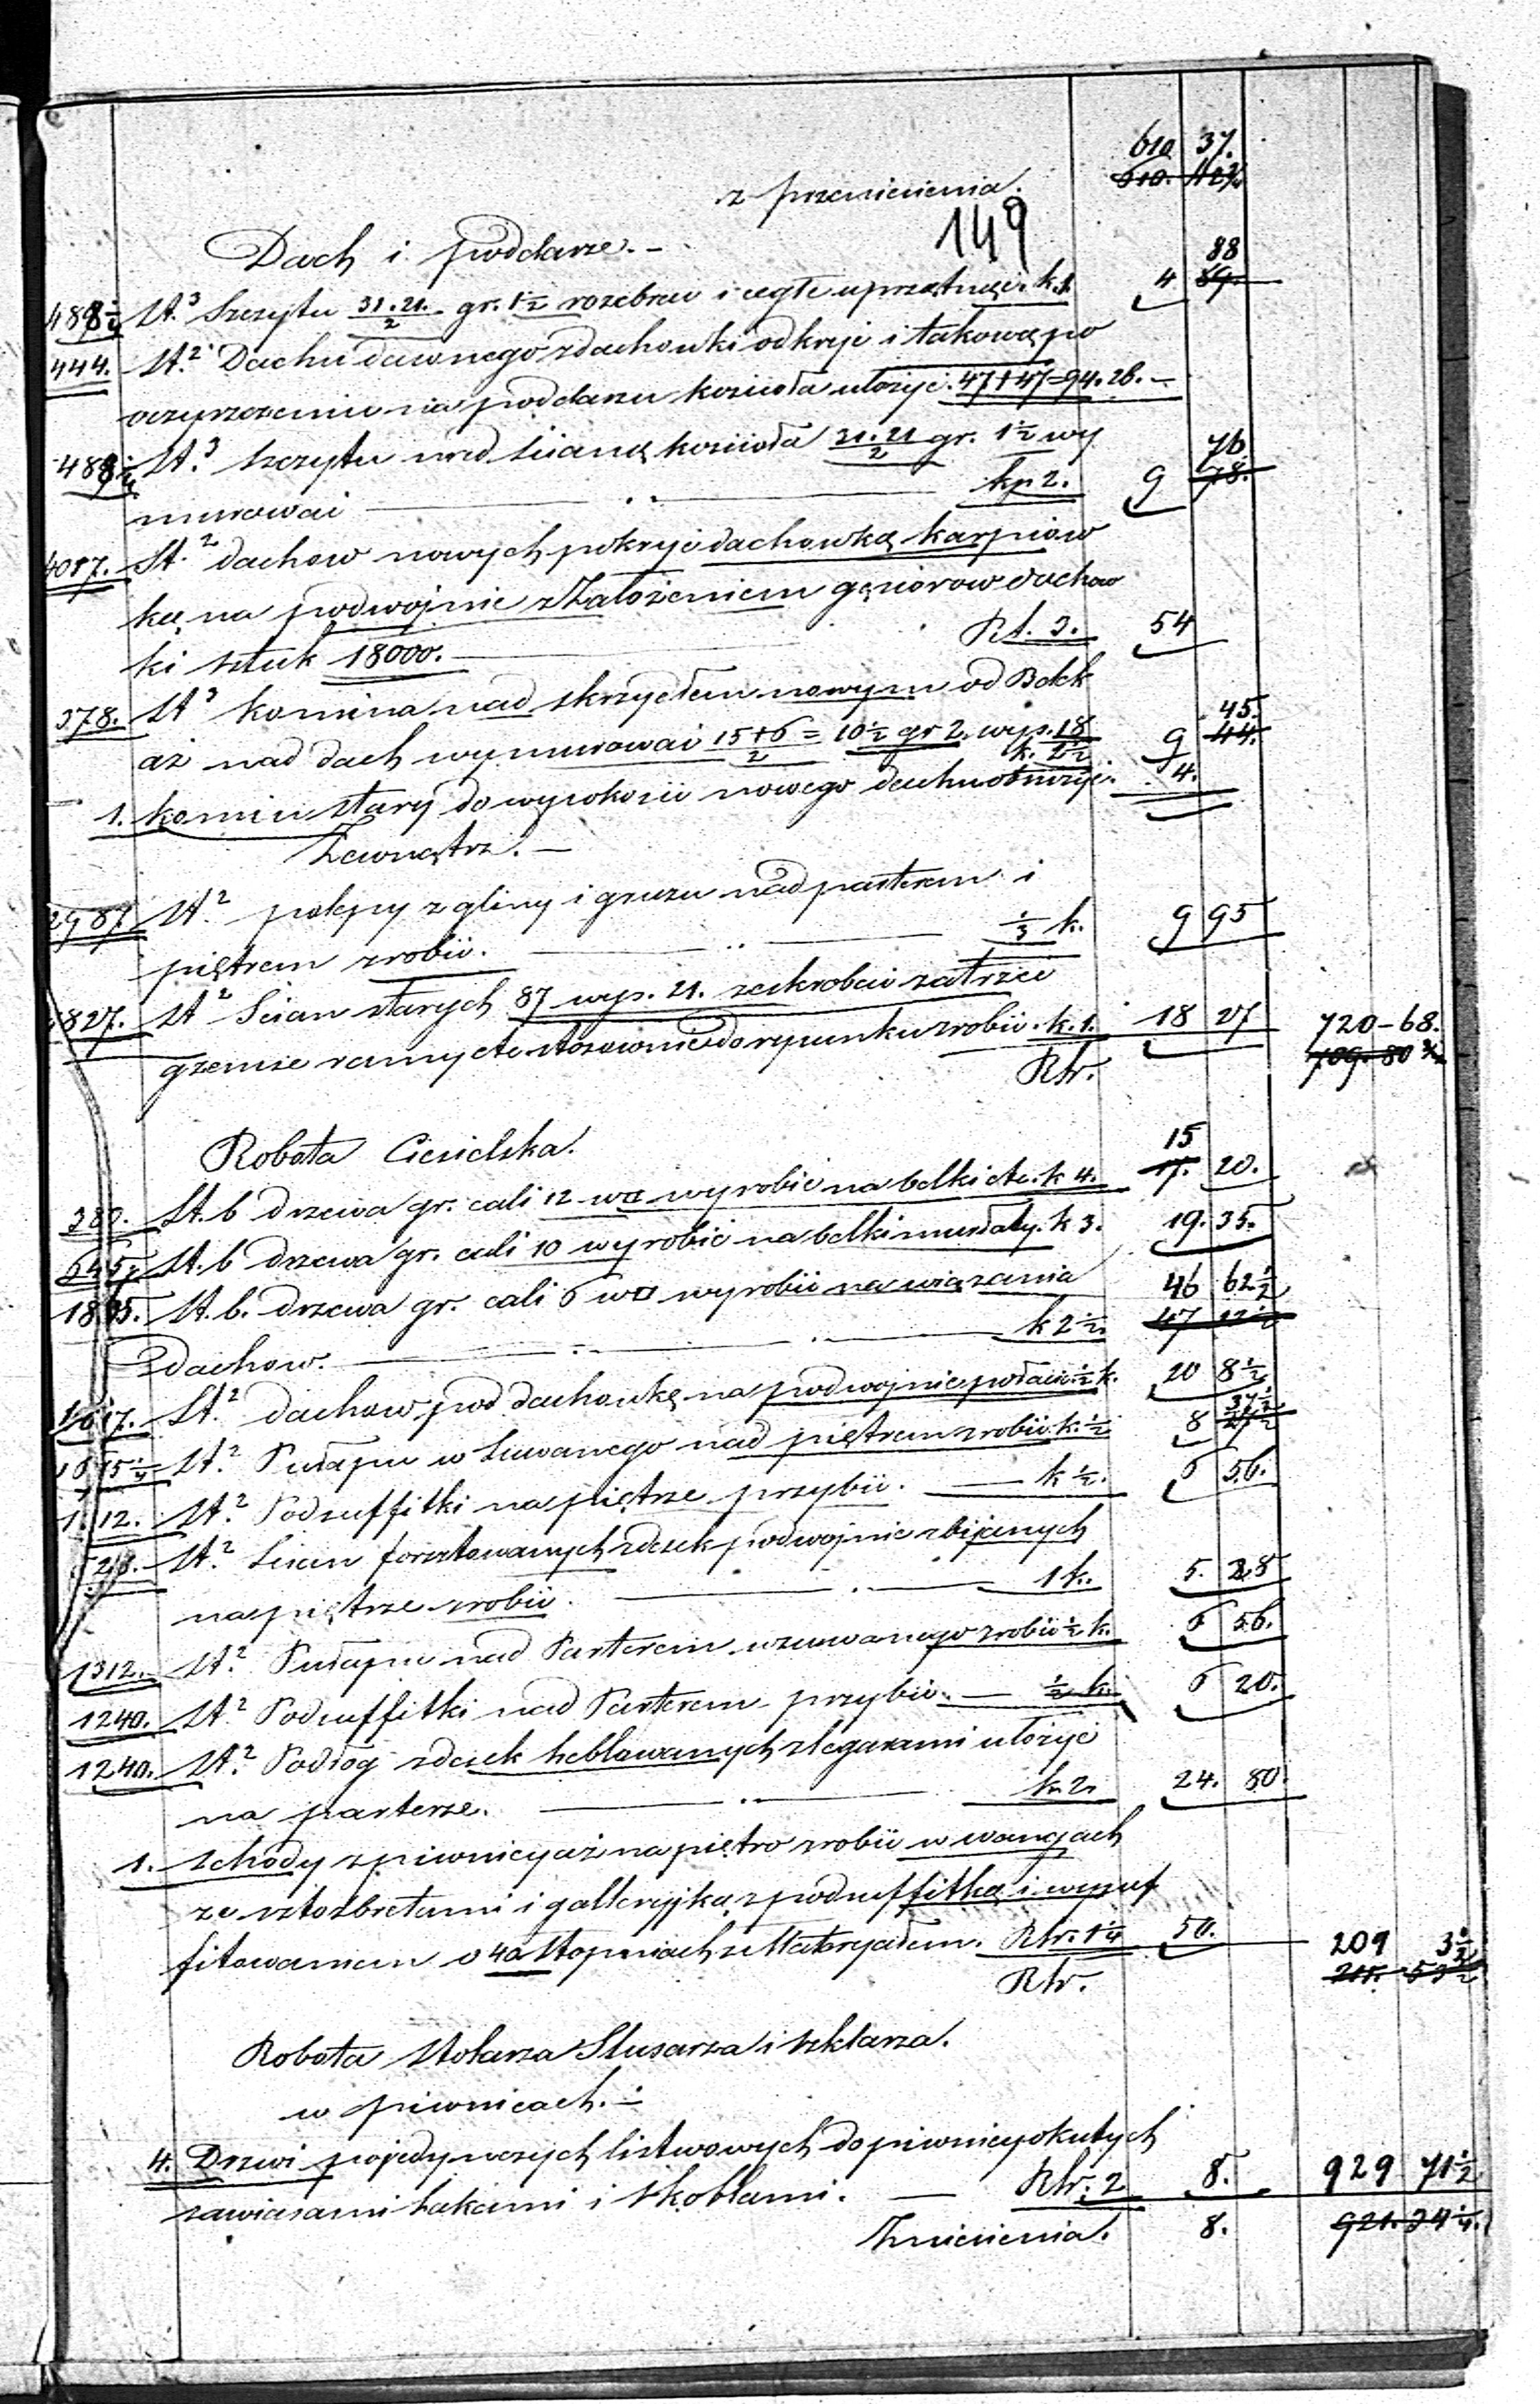 610 37.
z przeniesienia. 610. 11 2¾
149
Dach i poddasze. –
488¼ St.³ Szczytu 31.21./2 gr. 1½ rozebrać i cegłe uprzątnąć. k.1. 4 88 89.
444. St.² Dachu dawnego zdachowki odkryć i takową po
oczyszczeniu na poddaszu kosciola ulożyć. 47+47=94. 26. –
488¼ St.³ Szczytu nad ścianą kościoła 31.21/2 gr. 1½ wy
murować kp 2. 9 76 78.
4017. St.² dachow nowych pokryć dachowką karpiow
ką na podwojnie z Założeniem gąsiorow dachow
ki sztuk 18000. Rt. 3. 54
378. St³ komina nad skrzydłem nowym od Belek
aż nad dach wymurować 15+6/2 = 10½ gr 2. wys. 18 k. 2½ 9 45. 44.
1. komin stary do wysokości nowego dachu obniżyć. 4.
Zewnątrz. –
2987. St.² polepy z gliny i gruzu nad parterem i
piętrem zrobić. ⅓ k. 9 95
1827. St² Ścian starych 87 wys. 21. zeskrobać zatrzeć
gzemse ramy etc stosownie do rysunku zrobić. k. 1. 18 27 720 – 68.
Rtr. 709. 80 ¾
Robota Ciesielska. 15
380. St. b drzewa gr. cali 12 w□ wyrobić na belki etc. k 4. 17. 20.
645. St. b drzewa gr. cali 10 wyrobić na belki murłaty. k 3. 19. 35.
1865. St. b. drzewa gr. cali 6 w□ wyrobić na wiązania 46 62½
dachow. k 2½ 47 12½
4017. St.² dachow pod dachowkę na podwojnie połacić ½ k. 20 8½
1675¼ St.² Pułapu wsuwanego nad piętrem zrobić. k. ½ 8 37½ 27½
1312. St.² Podsuffitki na piętrze przybić. k ½. 6 56.
528. St.² Ścian forsztowanych zdesek podwojnie zbijanych
na piętrze zrobić. 1 k. 5. 28
1312. St.² Pułapu nad Parterem wsuwanego zrobić ½ k. 6 56.
1240. St.² Podsuffitki nad Parterem przybić. – ½ k. 6 20.
1240. St.² Podłog zdesek heblowanych zlegarami ułożyć
na parterze. k. 2. 24. 80.
1. Schody z piwnicy aż na piętro zrobić w wangach
ze sztosbretami i galleryjką z podsuffitką i wysuf
fitowaniem o 40 Stopniach z Materyałem. Rtr. 1¼ 50. 209 3½
Rtr. 211. 53½
Robota Stolarza Slusarza i szklarza.
w piwnicach. –
4. Drzwi pojedynczych listwowych do piwnicy okutych
zawiasami hakami i skoblami. – Rtr. 2 8. 929 71½
Zniesienia. 8. 921. 34¼.